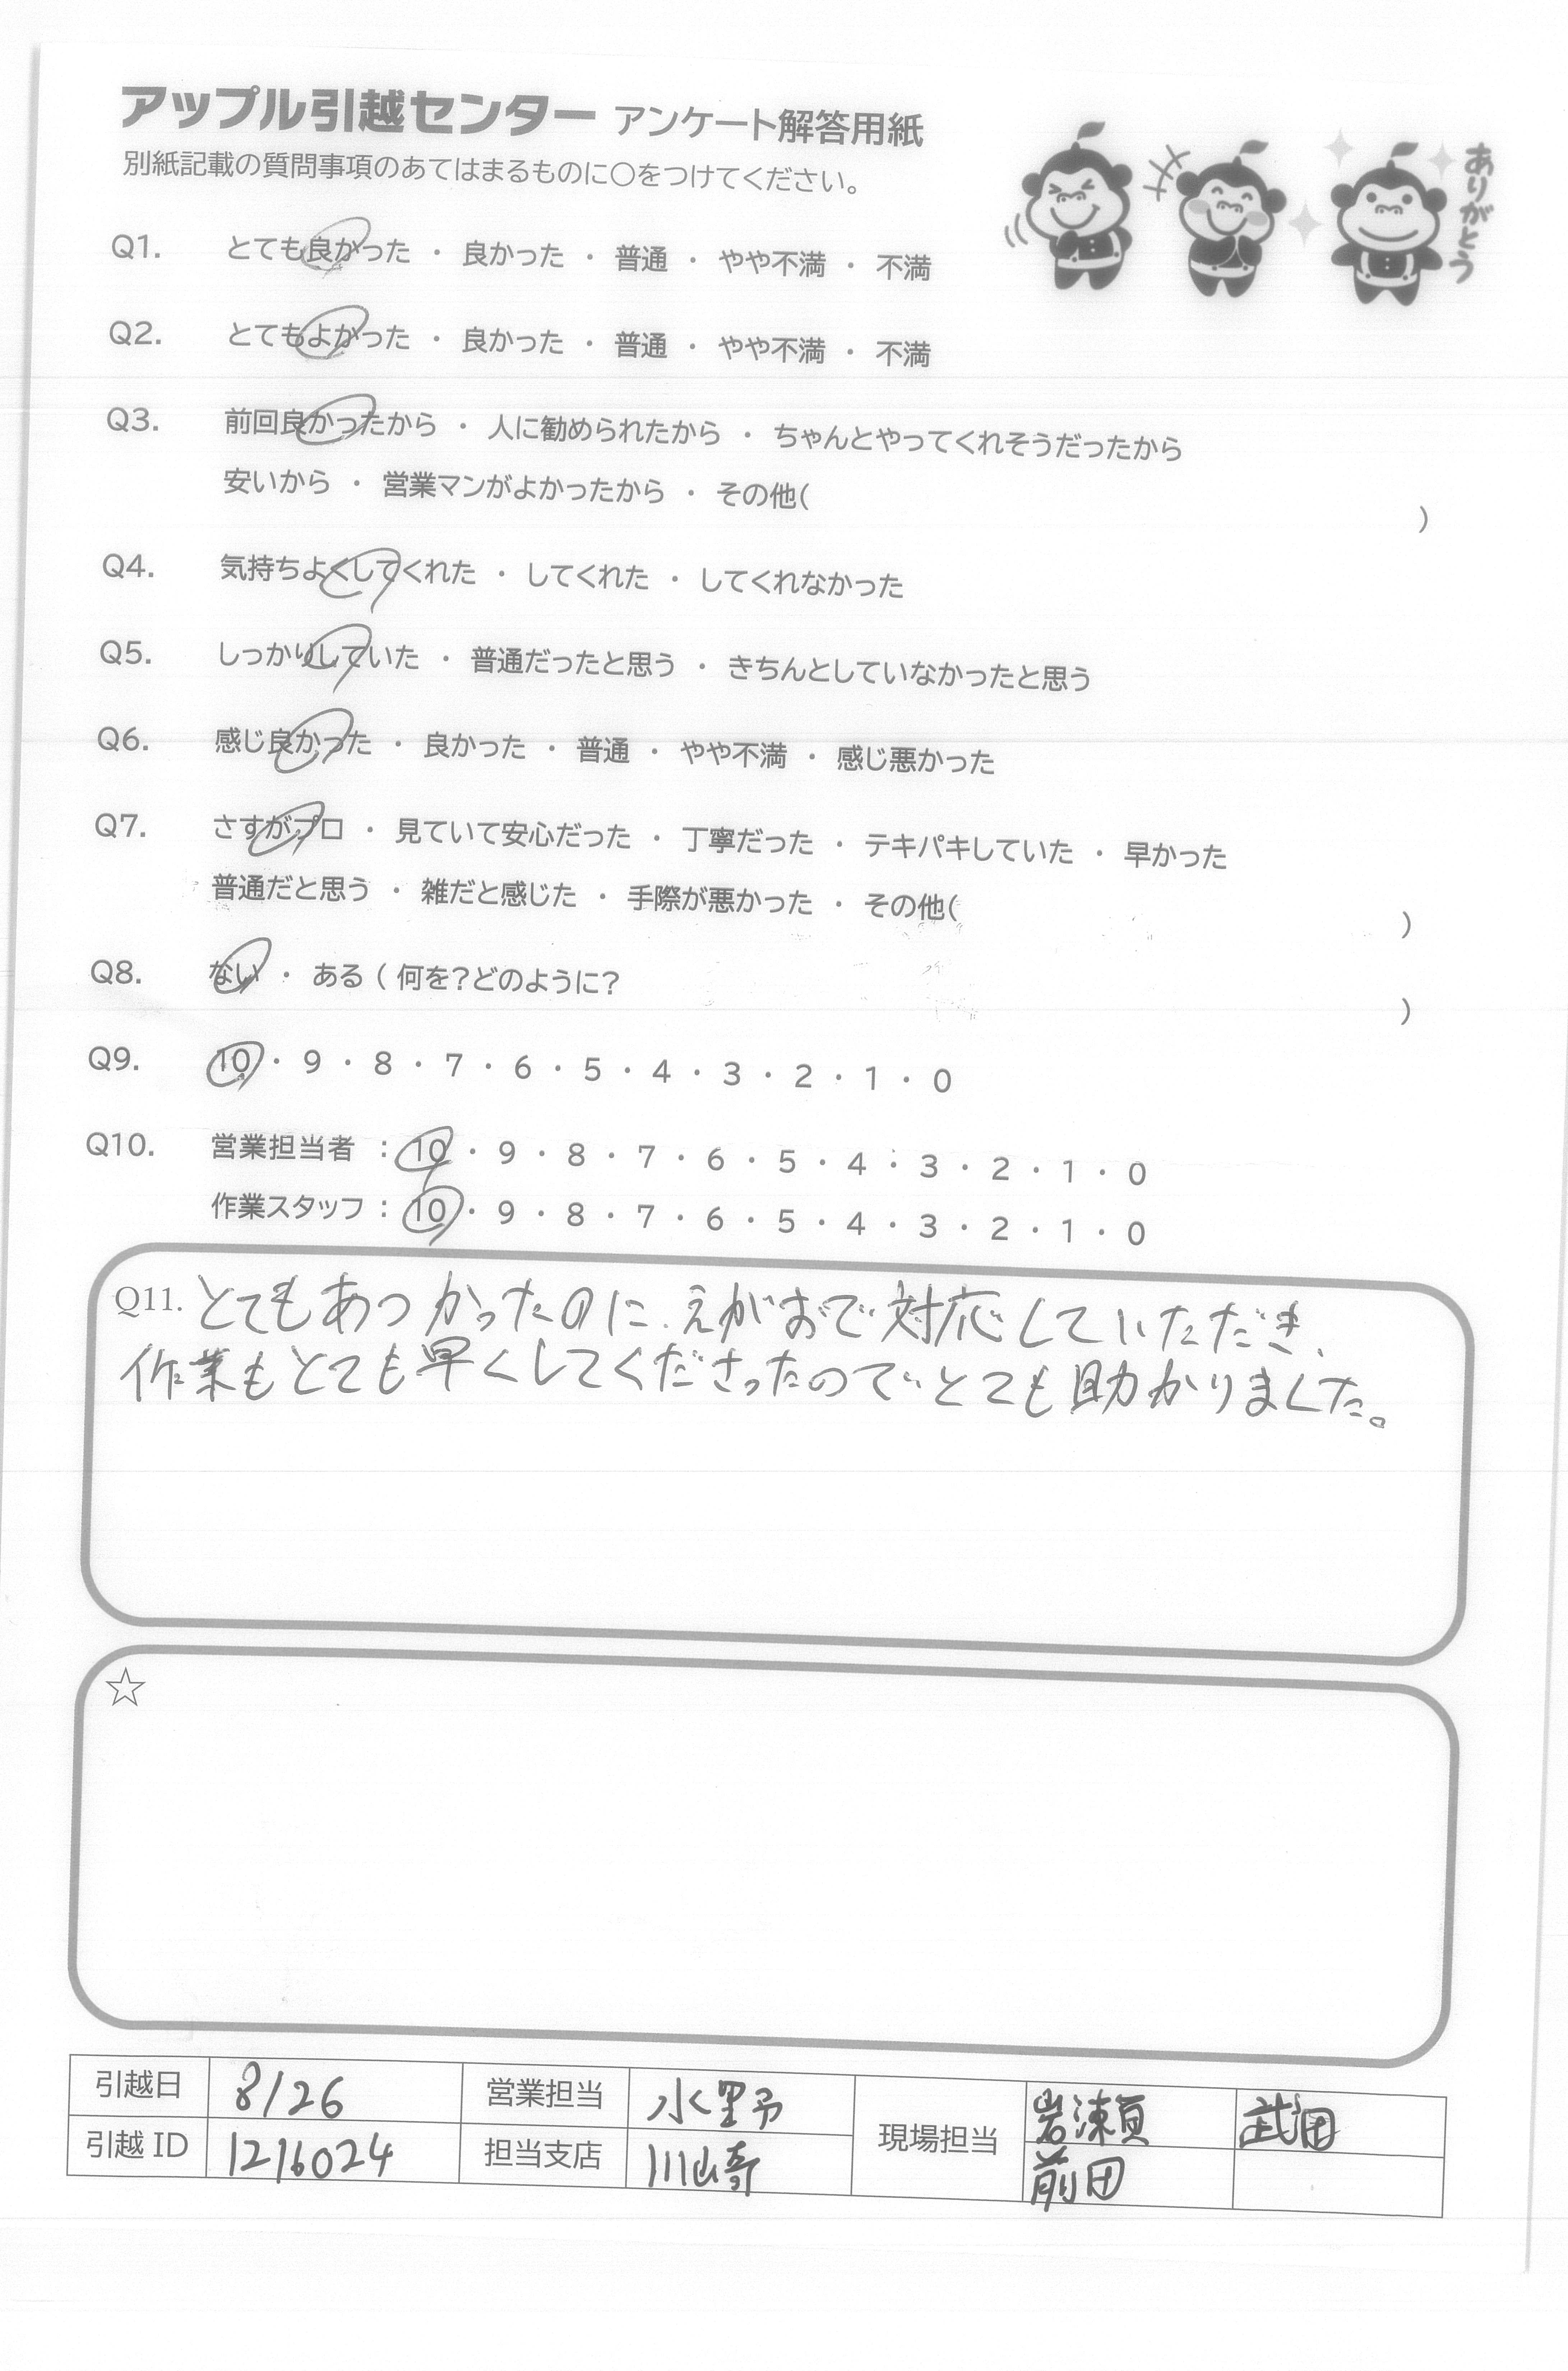 アップル引越センター アンケート解答用紙
別紙記載の質問事項のあてはまるものに○をつけてください。
ありがとう
Q1. とても良かった ・ 良かった ・ 普通 ・ やや不満 ・ 不満
Q2. とてもよかった ・ 良かった ・ 普通 ・ やや不満 ・ 不満
Q3. 前回良かったから ・ 人に勧められたから ・ ちゃんとやってくれそうだったから
安いから ・ 営業マンがよかったから ・ その他( )
Q4. 気持ちよくしてくれた ・ してくれた ・ してくれなかった
Q5. しっかりしていた ・ 普通だったと思う ・ きちんとしていなかったと思う
Q6. 感じ良かった ・ 良かった ・ 普通 ・ やや不満 ・ 感じ悪かった
Q7. さすがプロ ・ 見ていて安心だった ・ 丁寧だった ・ テキパキしていた ・ 早かった
普通だと思う ・ 雑だと感じた ・ 手際が悪かった ・ その他( )
Q8. ない ・ ある ( 何を?どのように? )
Q9. 10 ・ 9 ・ 8 ・ 7 ・ 6 ・ 5 ・ 4 ・ 3 ・ 2 ・ 1 ・ 0
Q10. 営業担当者 : 10 ・ 9 ・ 8 ・ 7 ・ 6 ・ 5 ・ 4 ・ 3 ・ 2 ・ 1 ・ 0
作業スタッフ : 10 ・ 9 ・ 8 ・ 7 ・ 6 ・ 5 ・ 4 ・ 3 ・ 2 ・ 1 ・ 0
Q11. とてもあつかったのに、えがおで対応していただき、
作業もとても早くしてくださったのでとても助かりました。
☆
引越日 8/26 営業担当 水野 現場担当 岩瀬 武田
引越 ID 1216024 担当支店 川崎 前田